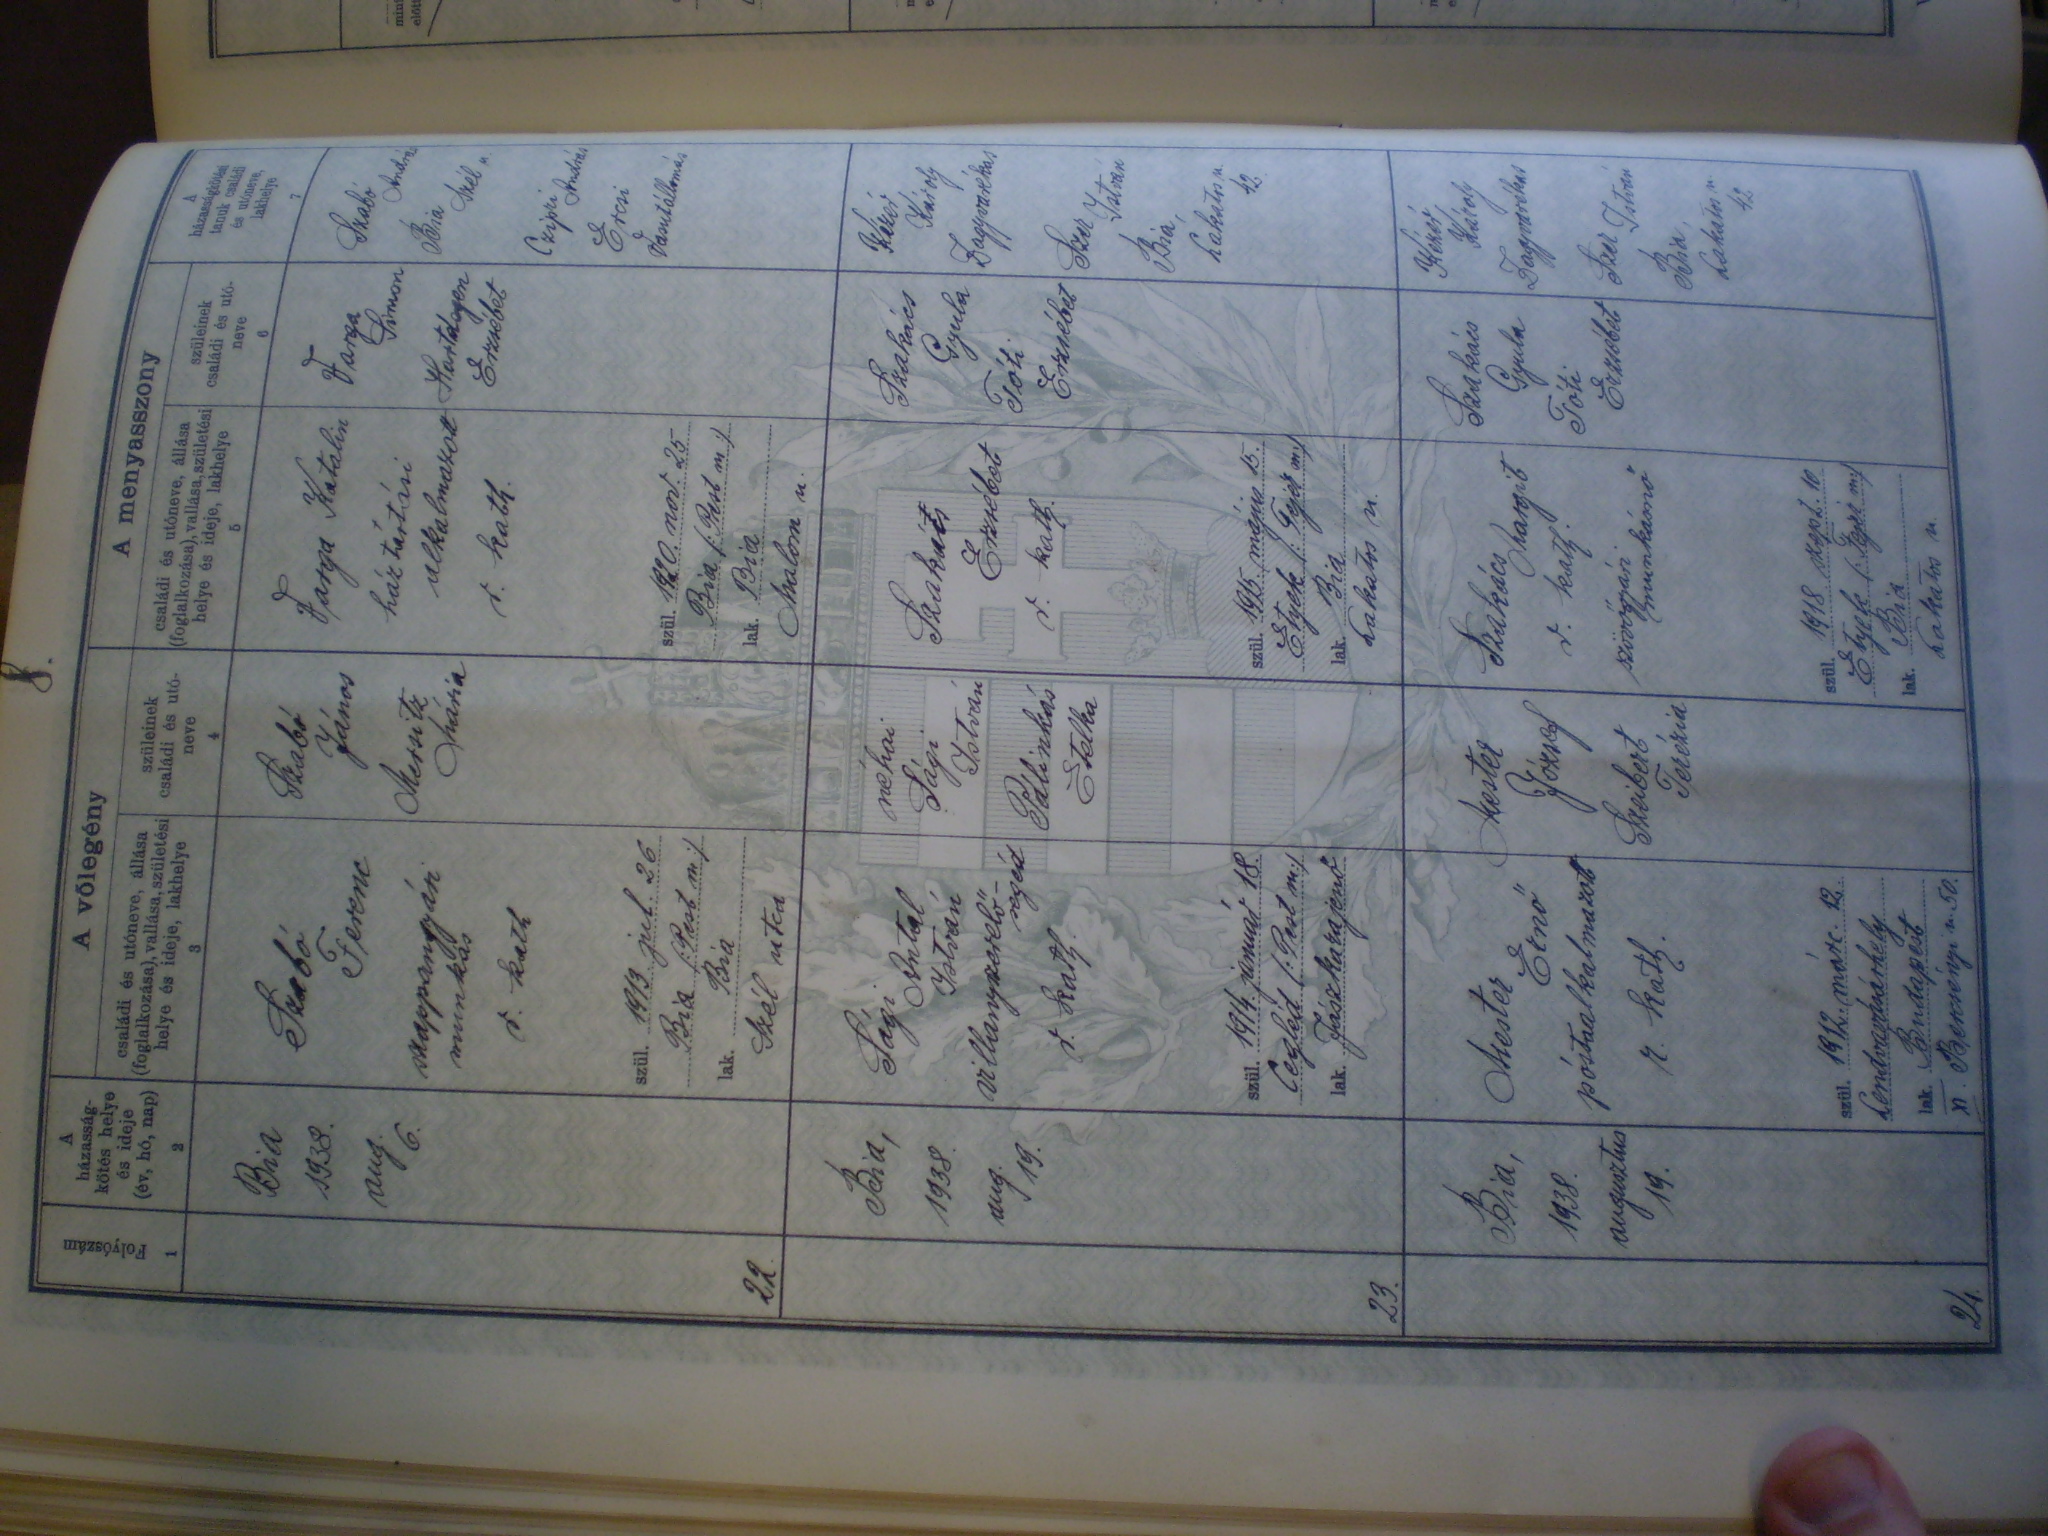 8.
A vőlegény
A menyasszony
Folyószám
A
házasság-
kötés helye
és ideje
(év, hó, nap)
családi és utóneve, állása
(foglalkozása), vallása, születési
helye és ideje, lakhelye
szüleinek
családi és utó-
neve
családi és utóneve, állása
(foglalkozása), vallása, születési
helye és ideje, lakhelye
szüleinek
családi és utó-
neve
A
házasságkötési
tanuk családi
és utóneve,
lakhelye
1
2
3
4
5
6
7
22.
Bia
1938.
aug.
6.
Szabó
Ferenc
szappangyári
munkás
r. kath
szül. 1913 jul. 26
Bia (: Pest m :)
lak. Bia
Szél utca
Szabó
János
Mária
Varga Katalin
háztartási
alkalmazott
r. kath.
szül. 1920. nov. 25
Bia (: Pest m :)
lak. Bia
Malom u.
Varga
Simon
Erzsébet
Szabó
András
Bia
Szél u.
András
Ercsi
23.
Bia,
1938.
aug.
19.
Sági
Antal
István
villanyszerelő-
segéd
r. kath.
szül. 1914. január 18.
Cegléd (: Pest m :)
lak. Jászkarajenő
néhai
Sági
István
Pálinkás
Etelka
Szakács
Erzsébet
r. kath.
szül. 1915. május 15.
Etyek (: Fejér m :)
lak. Bia
Lakatos u.
Szakács
Gyula
Tóti
Erzsébet
Károly
István
Bia
Lakatos u.
42
24.
Bia,
1938.
augusztus
19.
Mester
Ernő
póstaalkalmazott
r. kath.
szül. 1912. márc. 12.
Lendvavásárhely
lak. Budapest
XI. Beresényi u. 50.
Mester
József
Szeibert
Terézia
Szakács
Margit
r. kath.
szövőgyári
munkásnő
szül. 1918 szept. 10
Etyek (: Fejér m :)
lak. Bia
Lakatos u.
Szakács
Gyula
Tóti
Erzsébet
Károly
István
Bia,
Lakatos u.
42